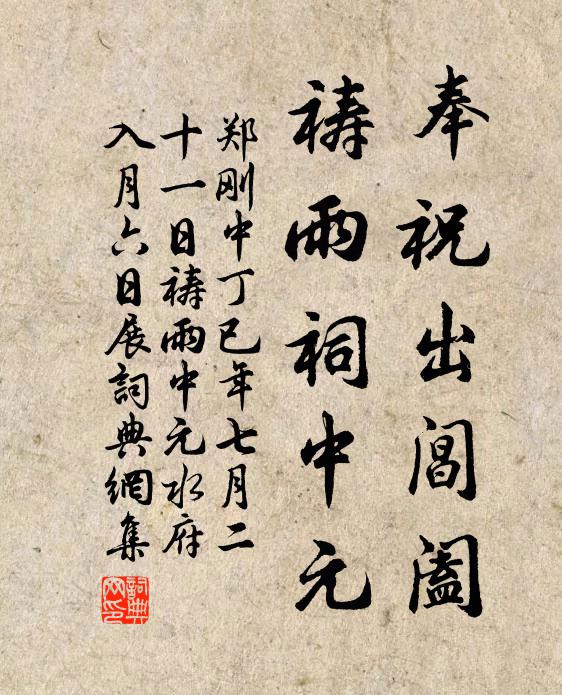 奉祝出閶阖
祷雨祠中元
郑刚中丁巳年七月二
十一日祷雨中元水府
入月六日展詞典網集
詞典網印